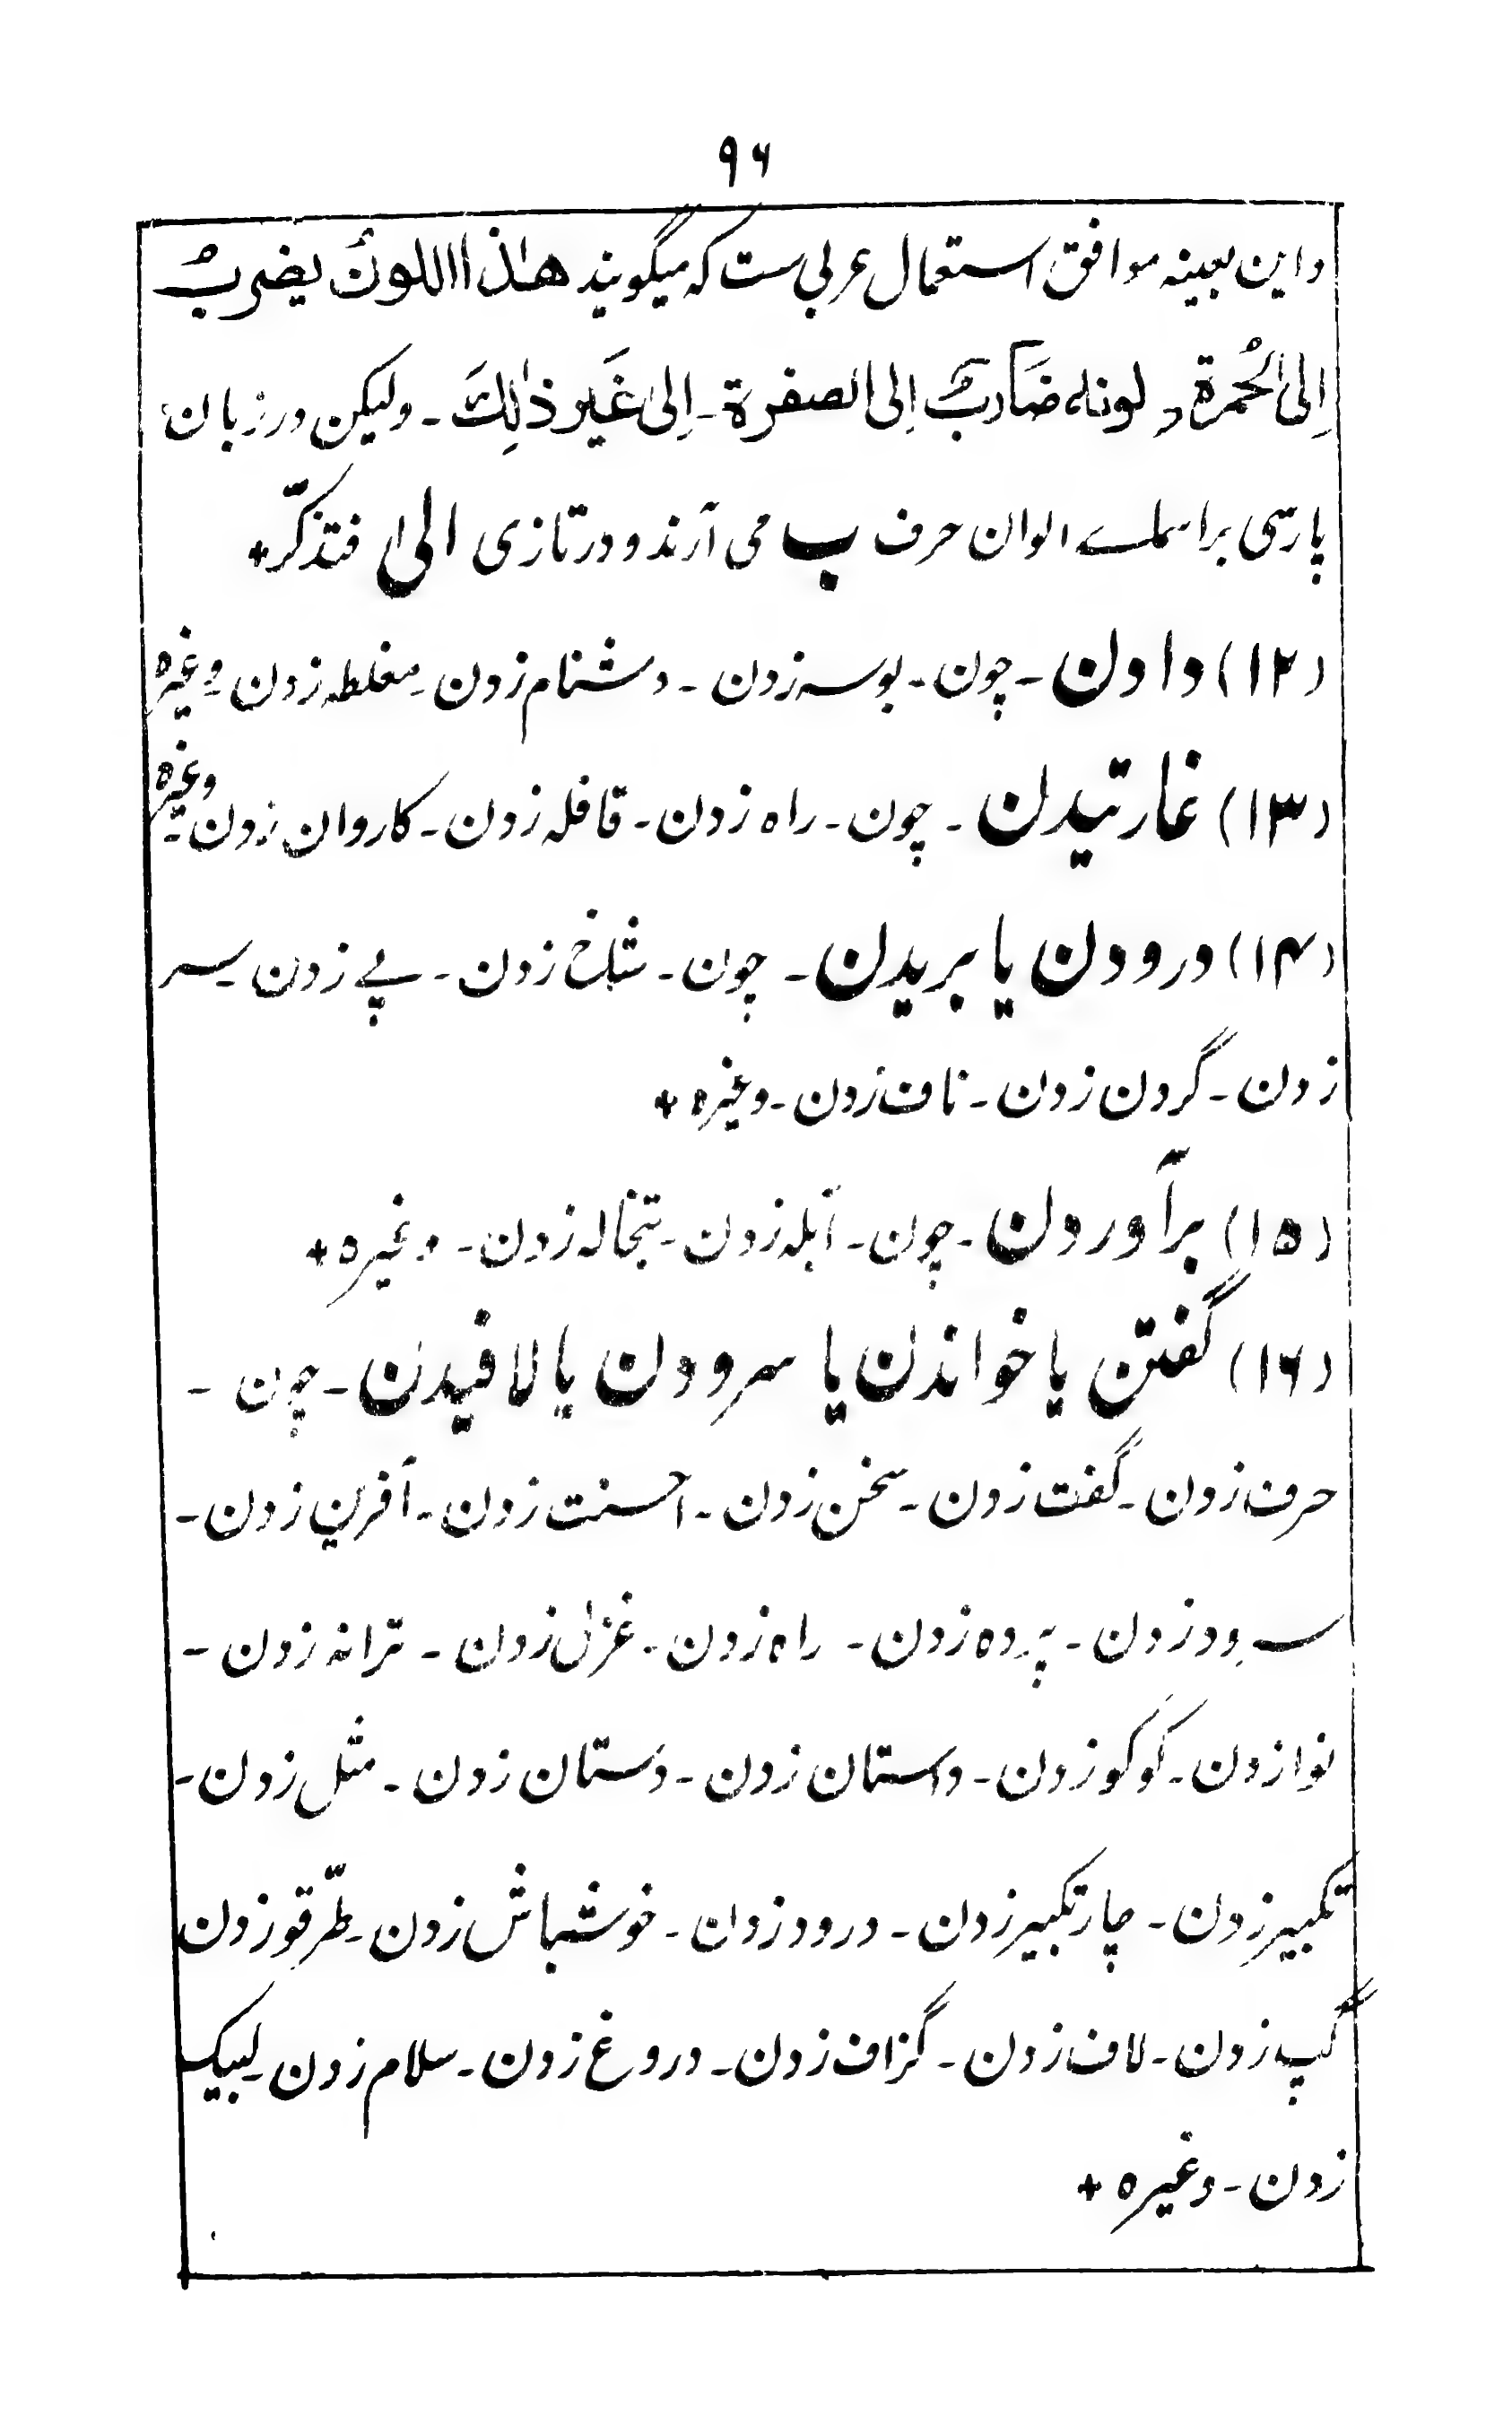 ۹۶
واین بعینه موافق استعمال عربی ست که میگویند هٰذا اللونُ یضربُ
اِلیَ الحُمرة و لونه ضَاربٌ اِلی الصفرة ـ اِلیٰ غَیر ذٰلِكَ ـ ولیکن در زبان
پارسی بر اسماے الوان حرف ب می آرند و در تازی الیٰ فتذکّر+
(۱۲) دادن ـ چون ـ بوسه زدن ـ دشنام زدن ـ مغلطه زدن ـ وغیره
(۱۳) غارتیدن ـ چون ـ راه زدن ـ قافله زدن ـ کاروان زدن ـ وغیره
(۱۴) درودن یا بریدن ـ چون ـ شاخ زدن ـ پے زدن ـ سر
زدن ـ گردن زدن ـ ناف زدن ـ وغیره +
(۱۵) برآوردن ـ چون ـ آبله زدن ـ تبخاله زدن ـ وغیره +
(۱۶) گفتن یا خواندن یا سرودن یا لافیدن ـ چون ـ
حرف زدن ـ گفت زدن ـ سخن زدن ـ احسنت زدن ـ آفرین زدن ـ
سرود زدن ـ پرده زدن ـ راه زدن ـ غزل زدن ـ ترانه زدن ـ
نوا زدن ـ کوکو زدن ـ داستان زدن ـ دَستان زدن ـ مثل زدن ـ
تکبیر زدن ـ چار تکبیر زدن ـ درود زدن ـ خوشباش زدن ـ طرّقو زدن
گپ زدن ـ لاف زدن ـ گزاف زدن ـ دروغ زدن ـ سلام زدن ـ لبیک
زدن ـ وغیره +